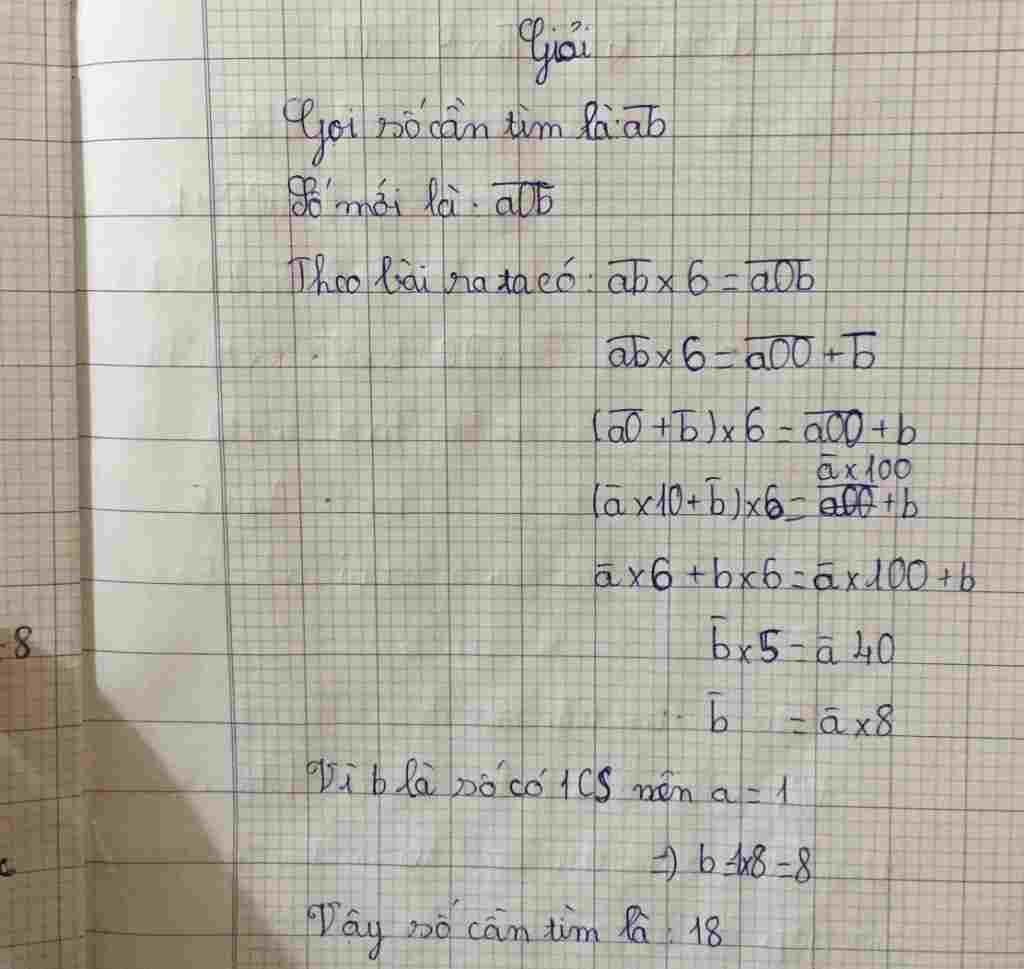 Giải
Gọi số cần tìm là: a̅b̅
Số mới là: a̅0̅b̅
Theo bài ra ta có: a̅b̅ x 6 = a̅0̅b̅
a̅b̅ x 6 = a̅0̅0̅ + b̅
(a̅0̅ + b̅) x 6 = a̅0̅0̅ + b
a̅ x 100
(a̅ x 10 + b̅) x 6 = a̅0̅0̅ + b
a̅ x 6 + b x 6 = a̅ x 100 + b
b̅ x 5 = a̅ 40
- 8
b̅ = a̅ x 8
Vì b là số có 1CS nên a = 1
=> b = 1x8 = 8
Vậy số cần tìm là: 18